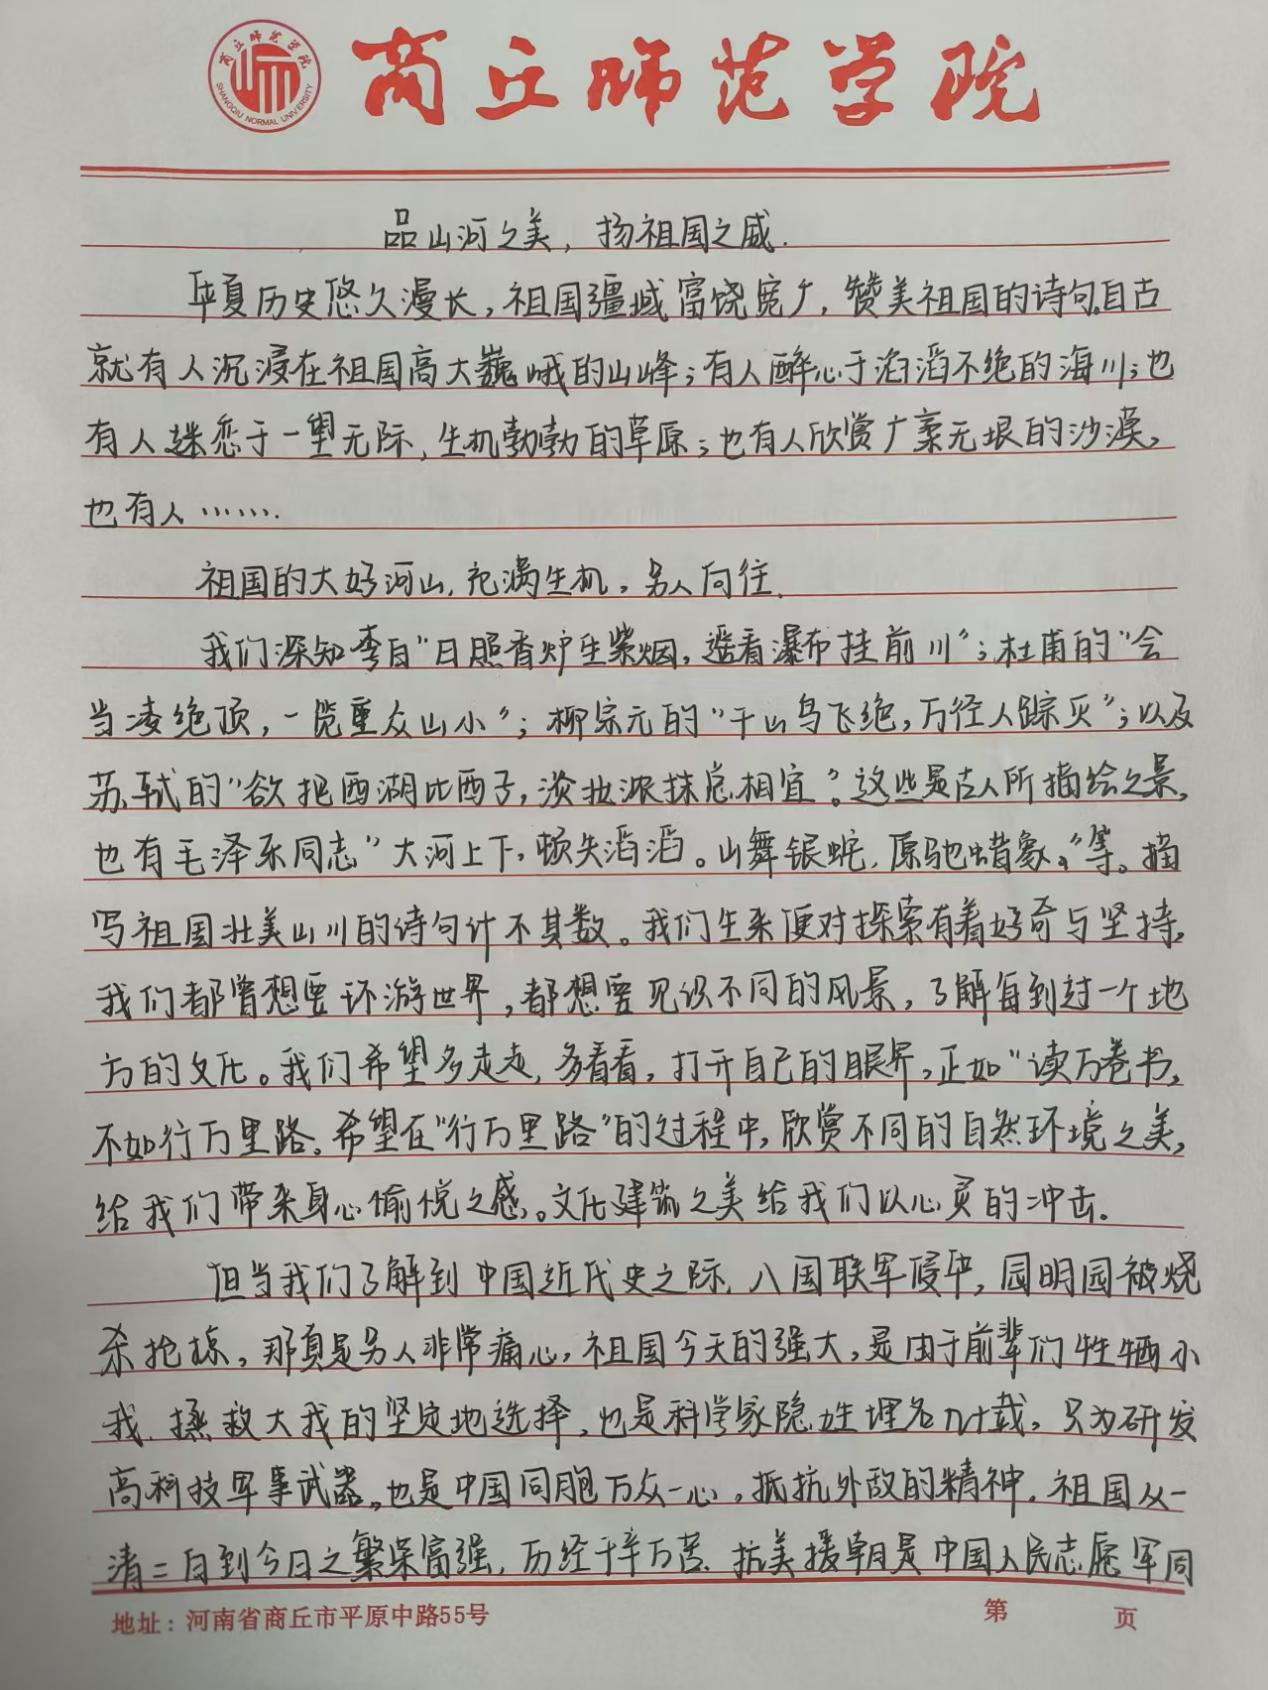 商丘师范学院
SHANGQIU NORMAL UNIVERSITY
商丘师范学院
品山河之美，扬祖国之威.
华夏历史悠久漫长，祖国疆域富饶宽广，赞美祖国的诗句.自古
就有人沉浸在祖国高大巍峨的山峰；有人醉心于滔滔不绝的海川；也
有人迷恋于一望无际，生机勃勃的草原；也有人欣赏广袤无垠的沙漠，
也有人…….
祖国的大好河山，充满生机，另人向往.
我们深知李白“日照香炉生紫烟，遥看瀑布挂前川”；杜甫的“会
当凌绝顶，一览重众山小”；柳宗元的“千山鸟飞绝，万径人踪灭”；以及
苏轼的“欲把西湖比西子，淡妆浓抹总相宜”。这些是古人所描绘之景，
也有毛泽东同志“大河上下，顿失滔滔。山舞银蛇，原驰蜡象，”等。描
写祖国壮美山川的诗句计不其数。我们生来便对探索有着好奇与坚持，
我们都曾想要环游世界，都想要见识不同的风景，了解每到过一个地
方的文化。我们希望多走走，多看看，打开自己的眼界，正如“读万卷书，
不如行万里路。希望在“行万里路”的过程中，欣赏不同的自然环境之美，
给我们带来身心愉悦之感。文化建筑之美给我们以心灵的冲击.
但当我们了解到中国近代史之际，八国联军侵华，园明园被烧
杀抢掠，那真是另人非常痛心，祖国今天的强大，是由于前辈们牲牺小
我、拯救大我的坚定地选择，也是科学家隐姓埋名几十载，只为研发
高科技军事武器，也是中国同胞万众一心，抵抗外敌的精神，祖国从一
清二白到今日之繁荣富强，历经千辛万苦、抗美援朝是中国人民志愿军同
地址：河南省商丘市平原中路55号
第 页